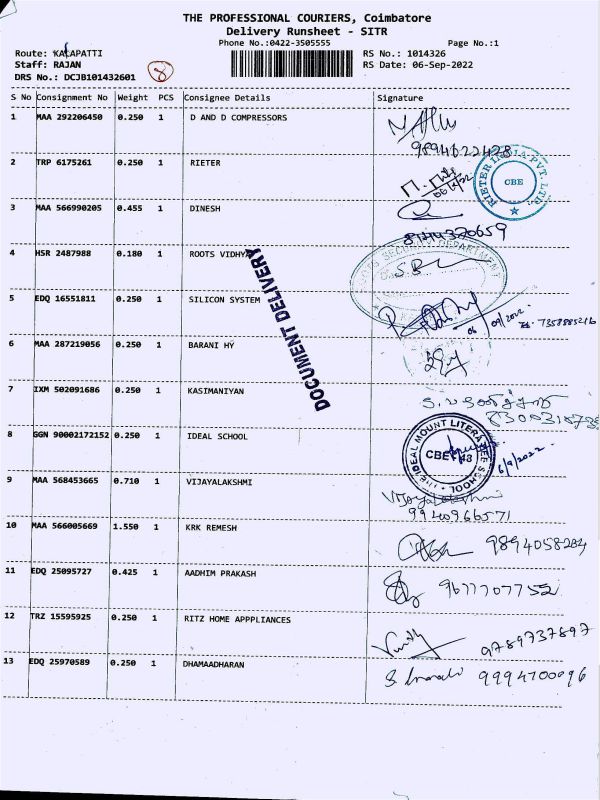 THE PROFESSIONAL COURIERS, Coimbatore
Delivery Runsheet - SITR
Phone No.:0422-3505555 Page No.:1
Route: KALAPATTI RS No.: 1014326
Staff: RAJAN 8 RS Date: 06-Sep-2022
DRS No.: DCJB101432601
S No Consignment No Weight PCS Consignee Details Signature
1 MAA 292206450 0.250 1 D AND D COMPRESSORS
9894622428
2 TRP 6175261 0.250 1 RIETER
RIETER INDIA PVT. LTD.
CBE
3 MAA 566990205 0.455 1 DINESH
8144320659
4 HSR 2487988 0.180 1 ROOTS VIDHYA
SECURITY DEPARTMENT
DOCUMENT DELIVERY
5 EDQ 16551811 0.250 1 SILICON SYSTEM
06/09/2022
7358885216
6 MAA 287219056 0.250 1 BARANI HY
7 IXM 502091686 0.250 1 KASIMANIYAN
8 GGN 90002172152 0.250 1 IDEAL SCHOOL
IDEAL MOUNT LITERA SCHOOL
CBE 48
6/9/2022
9 MAA 568453665 0.710 1 VIJAYALAKSHMI
Vijayalakshmi
9940966571
10 MAA 566005669 1.550 1 KRK REMESH
9894058204
11 EDQ 25095727 0.425 1 AADHIM PRAKASH
9677707752
12 TRZ 15595925 0.250 1 RITZ HOME APPPLIANCES
9789737897
13 EDQ 25970589 0.250 1 DHAMAADHARAN
9994700096